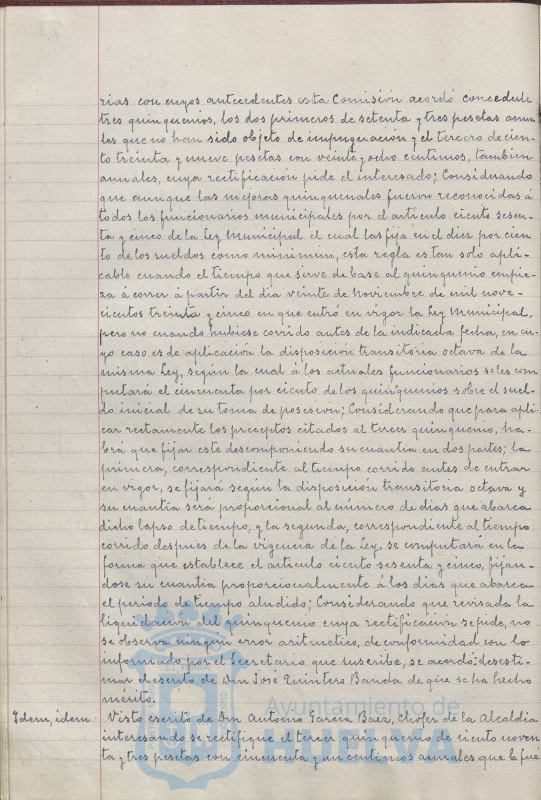 rias con cuyos antecedentes esta Comisión acordó concederle
tres quinquenios, los dos primeros de setenta y tres pesetas anua
les que no han sido objeto de impugnación y el tercero de cien-
to treinta y nueve pesetas con veinte y ocho centimos, tambien
anuales, cuya rectificación pide el interesado; Considerando
que aunque las mejoras quinquenales fueron reconocidas á
todos los funcionarios municipales por el artículo ciento sesen-
ta y cinco de la Ley Municipal el cual las fija en el diez por cien
to de los sueldos como minimun, esta regla es tan solo apli-
cable cuando el tiempo que sirve de base al quinquenio empie-
za á correr á partir del dia veinte de noviembre de mil nove-
cientos treinta y cinco en que entró en vigor la Ley Municipal,
pero no cuando hubiese corrido antes de la indicada fecha, en cu-
yo caso es de aplicación la disposición transitoria octava de la
misma Ley, según la cual á los actuales funcionarios se les com
putará el cincuenta por ciento de los quinquenios sobre el suel-
do inicial de su toma de posesion; Considerando que para apli-
car rectamente los preceptos citados al tercer quinquenio, ha-
brá que fijar este descomponiendo su cuantia en dos partes; la
primera, correspondiente al tiempo corrido antes de entrar
en vigor, se fijará según la disposición transitoria octava y
su cuantia será proporcional al número de dias que abarca
dicho lapso de tiempo, y la segunda, correspondiente al tiempo
corrido despues de la vigencia de la Ley, se computará en la
forma que establece el articulo ciento sesenta y cinco, fijan-
dose su cuantia proporcionalmente á los dias que abarca
el periodo de tiempo aludido; Considerando que revisada la
liquidacion del quinquenio cuya rectificacion se pide, no
se observa ningún error aritmetico, de conformidad con lo
informado por el Secretario que suscribe, se acordó: desesti-
mar el escrito de Don José Quintero Banda de que se ha hecho
mérito.
Idem, idem. Visto escrito de Don Antonio Garcia Baez, chofer de la Alcaldia
interesando se rectifique el tercer quinquenio de ciento noven
ta y tres pesetas con cincuenta y un centimos anuales que le fué
Ayuntamiento de
HUELVA